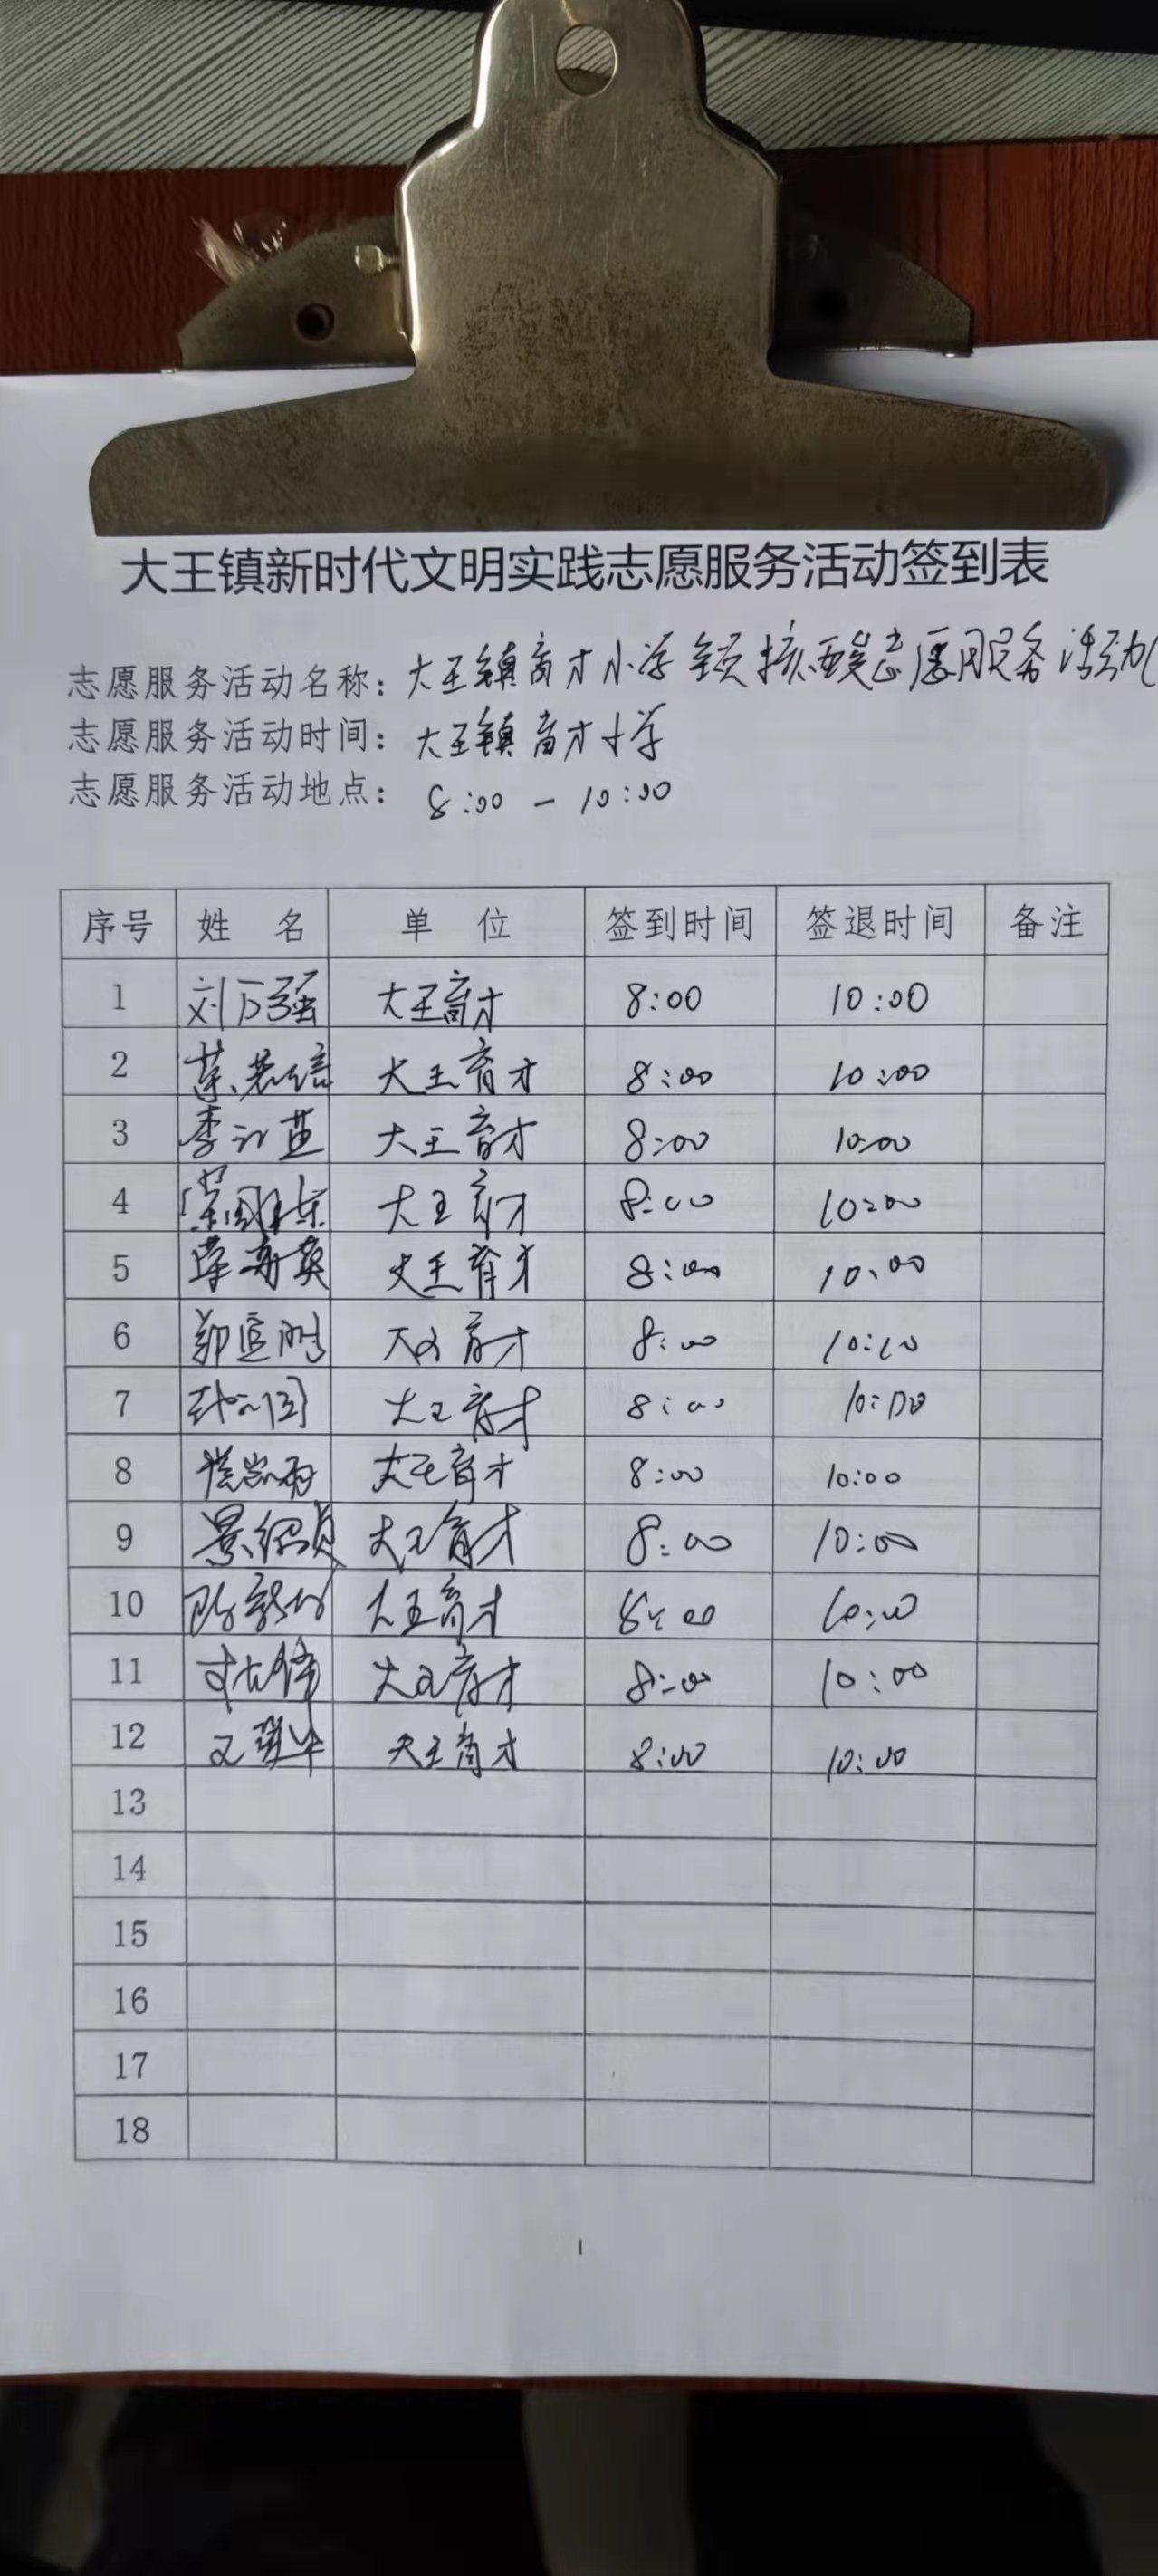 大王镇新时代文明实践志愿服务活动签到表
志愿服务活动名称：大王镇育才小学 核酸志愿服务活动
志愿服务活动时间：大王镇育才小学
志愿服务活动地点：8:00 — 10:00
序号 姓 名 单 位 签到时间 签退时间 备注
1 刘万强 大王育才 8:00 10:00
2 大王育才 8:00 10:00
3 李 大王育才 8:00 10:00
4 大王育才 8:00 10:00
5 大王育才 8:00 10:00
6 郭 大王育才 8:00 10:00
7 大王育才 8:00 10:00
8 大王育才 8:00 10:00
9 景 大王育才 8:00 10:00
10 大王育才 8:00 10:00
11 大王育才 8:00 10:00
12 大王育才 8:00 10:00
13
14
15
16
17
18
1